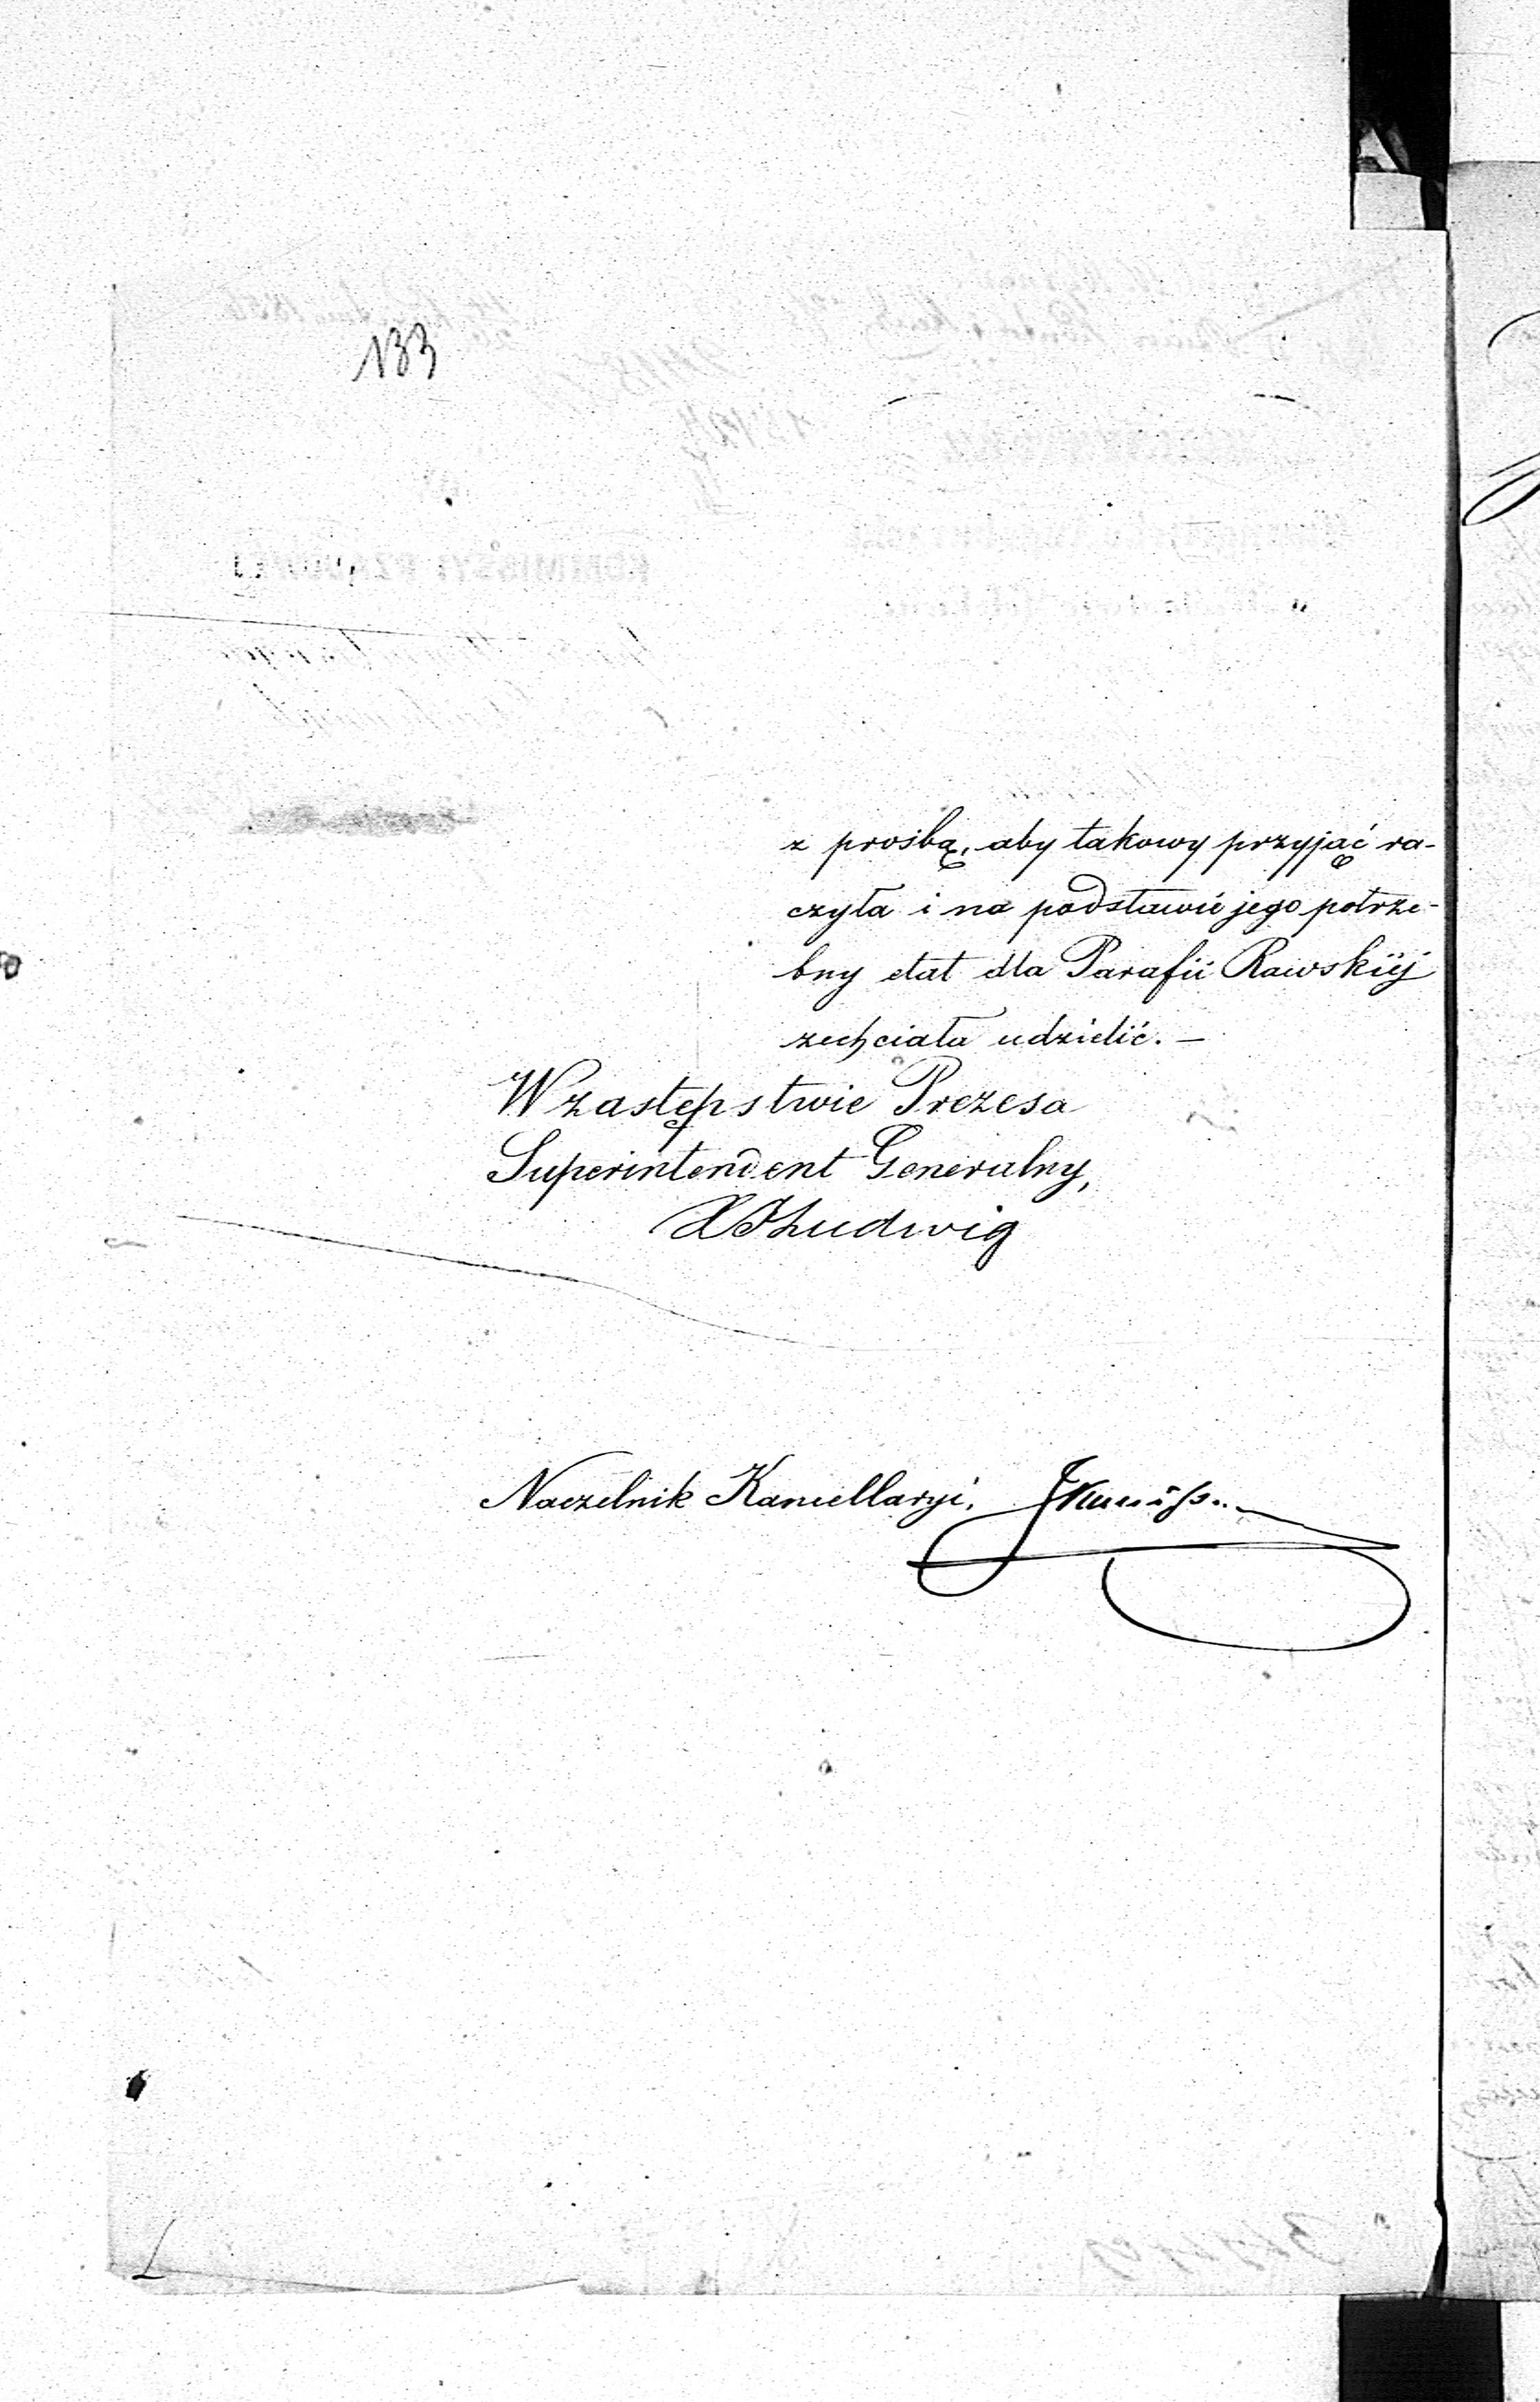 133
z prośbą, aby takowy przyjąć ra-
czyła i na podstawie jego potrze-
bny etat dla Parafii Rawskiej
zechciała udzielić. —
W zastępstwie Prezesa
Superintendent Generalny,
XJLudwig
Naczelnik Kancellaryi,